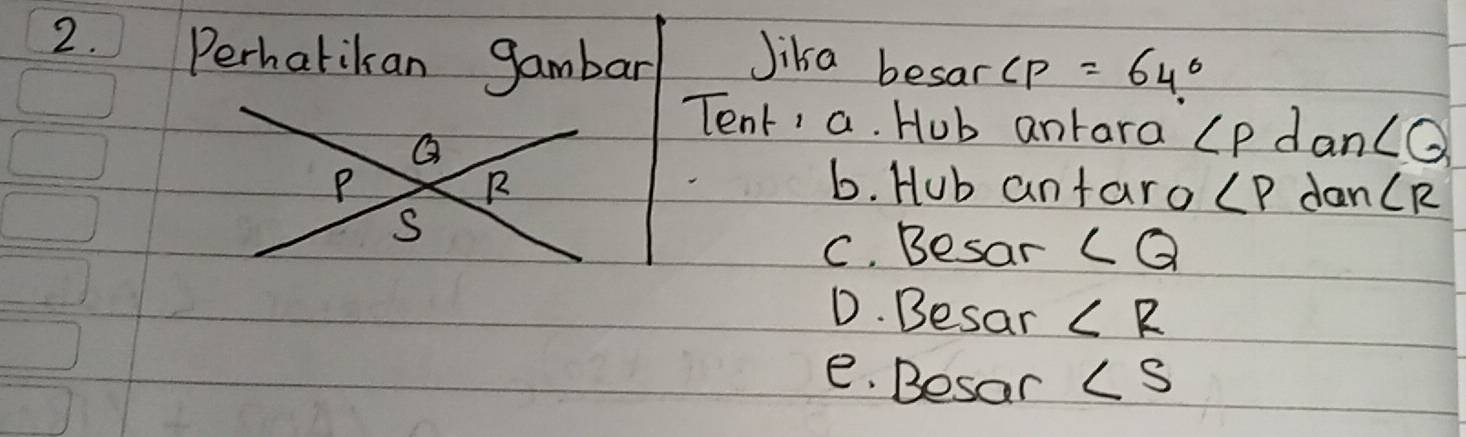 2. Perhatikan gambar
Q
P R
S
Jika besar <P = 64°
Tent : a. Hub antara <P dan <Q
b. Hub antara <P dan <R
C. Besar <Q
D. Besar <R
e. Besar <S